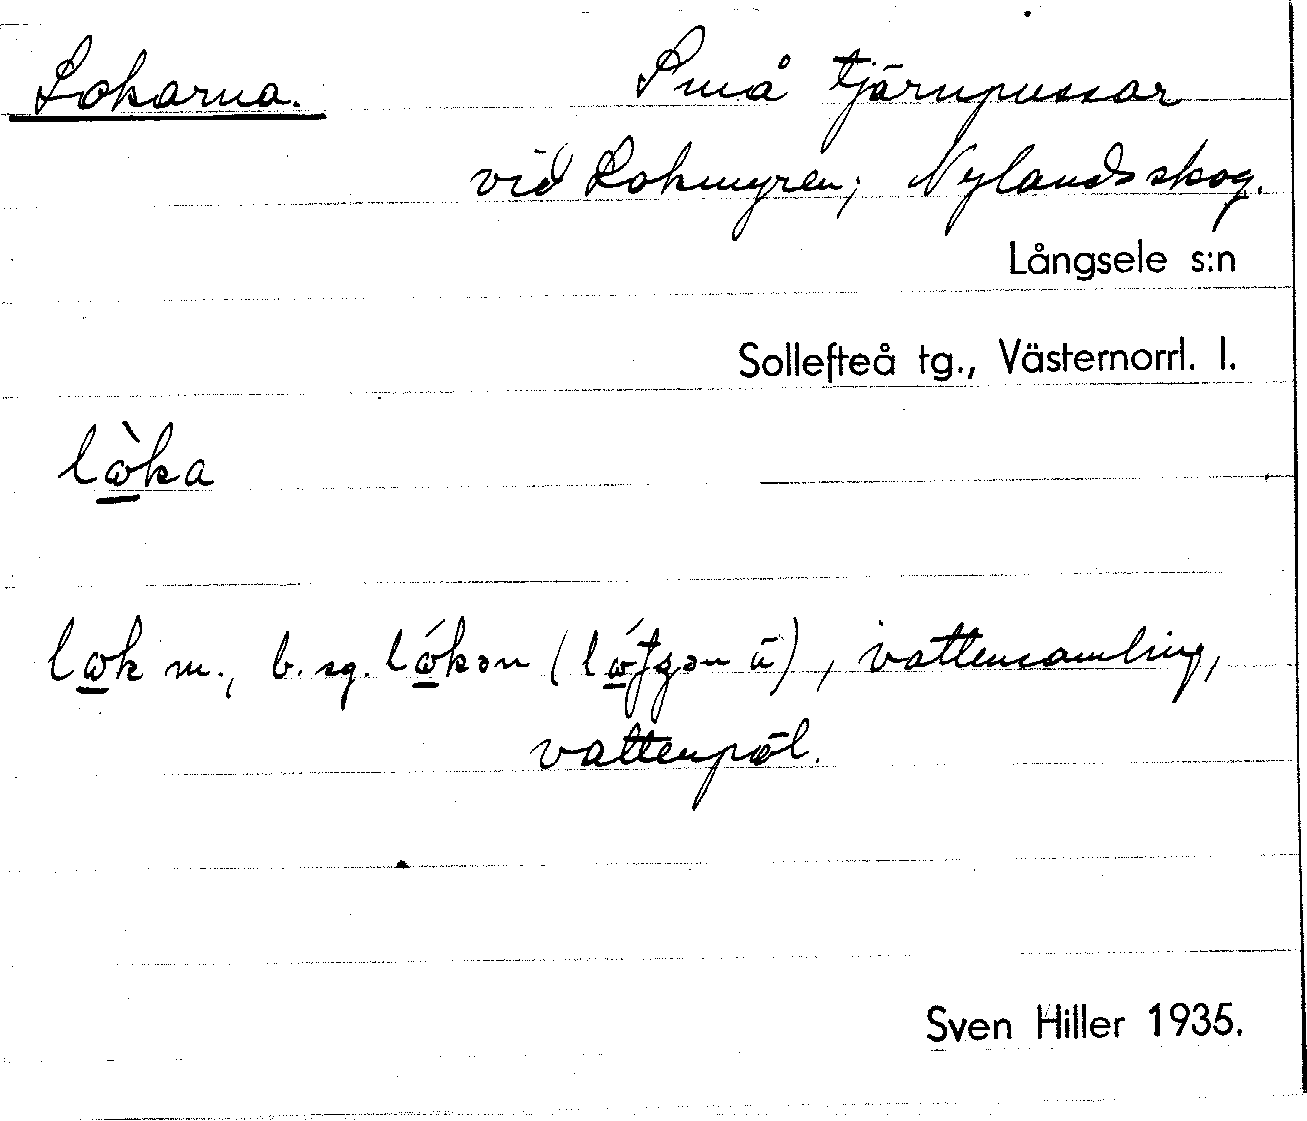 Lokarna. Små tjärnpussar
vid Lokmyren, Nylandsskog.
Långsele s:n
Sollefteå tg., Västernorrl. l.
lὼ̲ka
lω̲k m., b. sg. lώ̲kən ( ä), vattensamling,
vattenpöl.
Sven Hiller 1935.